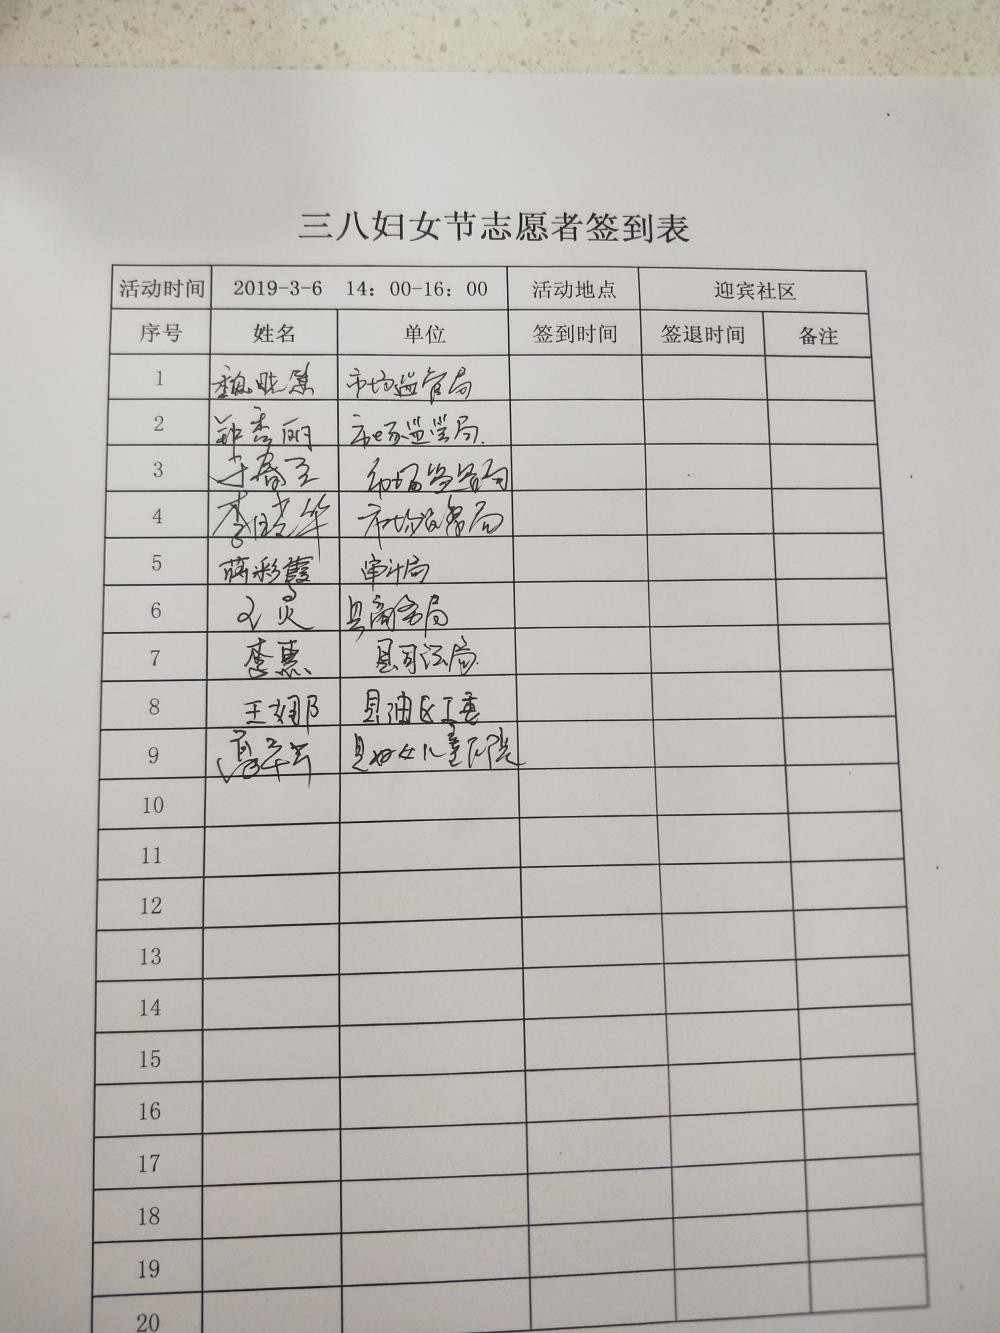 三八妇女节志愿者签到表
活动时间 2019-3-6 14：00-16：00 活动地点 迎宾社区
序号 姓名 单位 签到时间 签退时间 备注
1 魏晓 市场监管局
2 郭秀丽 市场监管局.
3 春 市场监管局
4 李晓华 市场监管局
5 蒋彩霞 审计局
6 县商务局
7 李惠 县司法局.
8 王娜 县油区工委
9 县妇女儿童医院
10
11
12
13
14
15
16
17
18
19
20